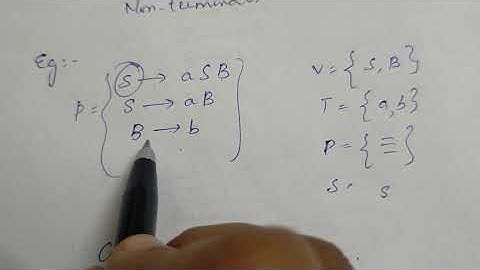 Non-terminals
Eg:-
S → aSB
P = { S → aB }
B → b
V = { S, B }
T = { a, b }
P = { ≡ }
S. S
C